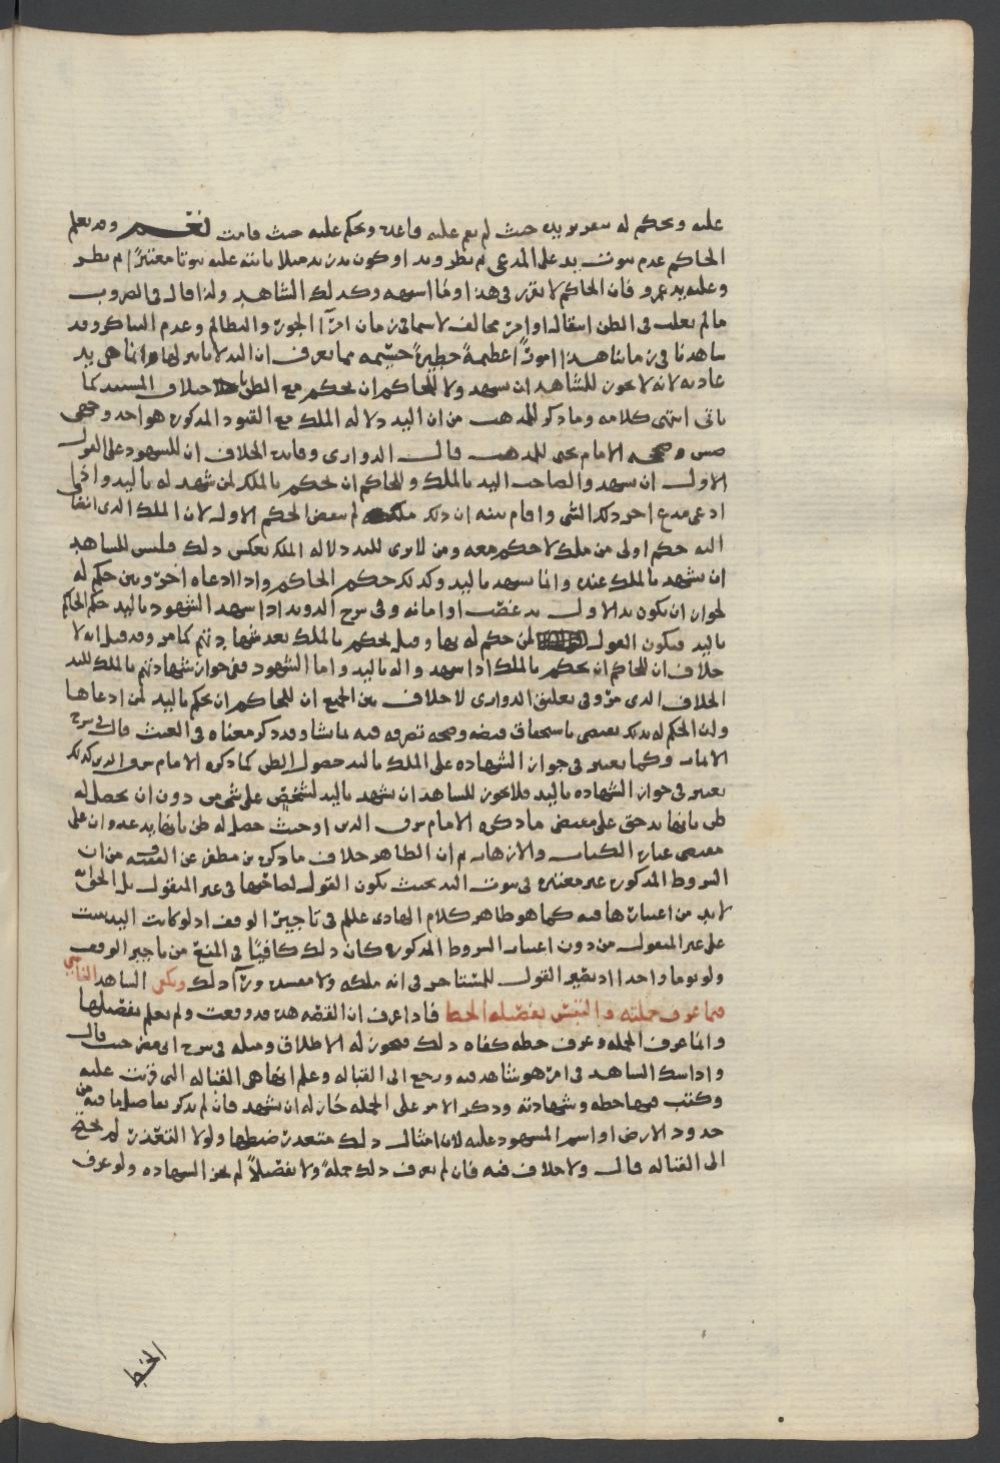 عليه ويحكم له بتقرير يده حيث لم تقم عليه قاعدة ويحكم عليه حيث قامت نعم وقد يعلم
الحاكم عدم ثبوت يد على المدعى ثم نظر وبد او كون يد زيد مثلا ثابتة عليه ثبوتا معتبرا ثم نظر
وعليه يد عمرو فان الحاكم لا يقرر في هذا او ما اشبهه وكذلك الشاهد ولذا قال في الضروب
ما لم يغلب في الظن انتقاله او امر مخالف لا سيما في زمان امراء الجور والتظالم وعدم التناكر وقد
شاهدنا في زماننا هذا امورا عظيمة خطيرة جسيمة مما يعرف ان اليد لا تاثير لها وانما هي يد
عادية لانه لا يجوز للشاهد ان يشهد ولا للحاكم ان يحكم مع الظن بخلاف المستند كما
ياتي انتهى كلامه وما ذكر للمذهب من ان اليد دلالة الملك مع القيود المذكورة هو احد وجهي
وصححه الامام يحيى للمذهب قال الدواري وفائدة الخلاف ان للشهود على القول
الاول ان يشهدوا لصاحب اليد بالملك وللحاكم ان يحكم بالملك لمن شهد له باليد واذا
ادعى مدع اخر ذلك الشي واقام بينة ان ذلك ملكه لم ينقض الحكم الاول لان الملك الذي انضاف
اليه حكم اولى من ملك لا حكم معه ومن لا يرى لليد دلالة الملك يعكس ذلك فليس للشاهد
ان يشهد بالملك عنده وانما يشهد باليد وكذلك حكم الحاكم واذا ادعاه اخر وبين حكم له
لجواز ان يكون يد الاول يد غصب او امانة وفي شرح الذويد اذا شهد الشهود باليد حكم الحاكم
باليد فيكون القول لمن حكم له بها وقيل يحكم بالملك بعد شهادتهم كما مر وقد قيل انه لا
خلاف ان للحاكم ان يحكم بالملك اذا شهدوا له باليد واما الشهود ففي جواز شهادتهم بالملك لليد
الخلاف الذي مر وفي تعليق الدواري لا خلاف بين الجميع ان للحاكم ان يحكم باليد لمن ادعاها
وان الحكم له بذلك يقتضي باستحقاق قبضه وصحة تصرفه فيه بما شا وقد ذكر معناه في الغيث قال في شرح
الاثمار وكما يعتبر في جواز الشهادة على الملك باليد حصول الظن كما ذكره الامام شرف الدين كذلك
يعتبر في جواز الشهادة باليد فلا يجوز للشاهد ان يشهد باليد لشخص على شي من دون ان يحصل له
ظن بانها يد حق على مقتضى ما ذكره الامام شرف الدين او حيث حصل له ظن بانها يد عدوان على
مقتضى عبارة الكتاب والازهار ثم ان الظاهر خلاف ما ذكره بن مظفر عن الفقيه من ان
الشروط المذكورة غير معتبرة في ثبوت اليد بحيث يكون القول لصاحبها في غير المنقول بل الحق انه
لا بد من اعتبارها فيه كما هو ظاهر كلام الهادي علم في تاجير الوقف اذ لو كانت اليد تثبت
على غير المنقول من دون اعتبار الشروط المذكورة كان ذلك كافيا في المنع من تاجير الوقف
ولو يوما واحدا اذ يصير القول للمستاجر في انه ملكه ولا مفسدة ورا ذلك ويكفي الشاهد الناسي
فيما عرف جملته والتبس تفصيله الخط فاذا عرف ان القضية هذه قد وقعت ولم يعلم تفصيلها
وانما عرف الجملة وعرف خطه كفاه ذلك فيجوز له الاطلاق ومثله في شرح حيث قال
واذا شك الشاهد في امر هو شاهد فيه ورجع الى القبالة وعلم انها هي القبالة التي قرئت عليه
وكتب فيها خطه وشهادته وذكر الامر على الجملة جاز له ان يشهد فان لم يذكر تفاصيل ما فيه من
حدود الارض او اسم المشهود عليه لان امثال ذلك متعذر ضبطها ولولا التعذر لم يحتج
الى القبالة قال ولا خلاف فيه فان لم يعرف ذلك جملة ولا تفصيلا لم يجز الشهادة ولو عرف
الخط